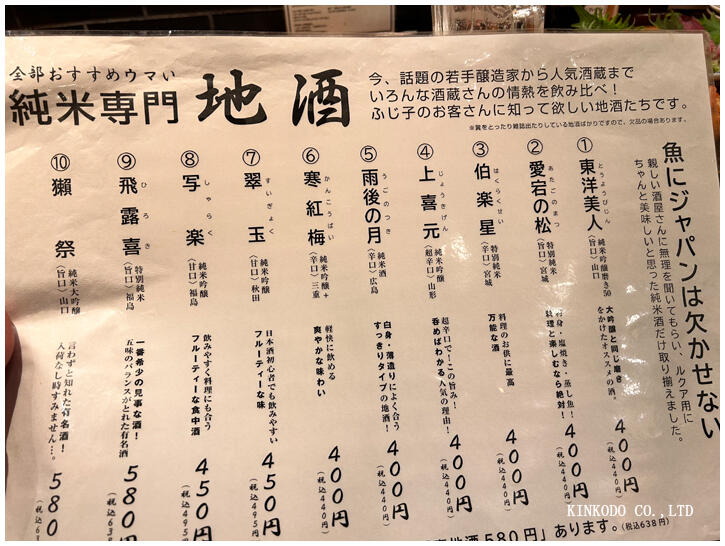 全部おすすめウマい
純米専門 地酒
今、話題の若手醸造家から人気酒蔵まで
いろんな酒蔵さんの情熱を飲み比べ!
ふじ子のお客さんに知って欲しい地酒たちです。
※賞をとったり雑誌出たりしている地酒ばかりですので、欠品の場合あります。
魚にジャパンは欠かせない
親しい酒屋さんに無理を聞いてもらい、ルクア用に
ちゃんと美味しいと思った純米酒だけ取り揃えました。
① 東洋美人 とうようびじん
純米吟醸磨き50
〈旨口〉山口
大吟醸と同じ磨き
をかけたオススメの酒。
400円
(税込440円)
② 愛宕の松 あたごのまつ
特別純米
〈旨口〉宮城
・塩焼き・蒸し魚!
料理と楽しむなら絶対!
400円
(税込440円)
③ 伯楽星 はくらくせい
特別純米
〈辛口〉宮城
料理のお供に最高
万能な酒
400円
(税込440円)
④ 上喜元 じょうきげん
純米吟醸
〈超辛口〉山形
超辛口で!この旨み!
呑めばわかる人気の理由!
400円
(税込440円)
⑤ 雨後の月 うごのつき
純米酒
〈辛口〉広島
白身・薄造りによく合う
すっきりタイプの地酒!
400円
(税込440円)
⑥ 寒紅梅 かんこうばい
純米吟醸+
〈辛口〉三重
軽快に飲める
爽やかな味わい
400円
(税込440円)
⑦ 翠玉 すいぎょく
純米吟醸
〈甘口〉秋田
日本酒初心者でも飲みやすい
フルーティーな味
450円
(税込495円)
⑧ 写楽 しゃらく
純米吟醸
〈甘口〉福島
飲みやすく料理にも合う
フルーティーな食中酒
450円
(税込495円)
⑨ 飛露喜 ひろき
特別純米
〈旨口〉福島
一番希少の見事な酒!
五味のバランスがとれた有名酒
580
(税込63
⑩ 獺祭
純米大吟醸
〈旨口〉山口
言わずと知れた有名酒!
入荷なし時すみません…。
580
(税込63
地酒580円」あります。(税込638円)
KINKODO CO.,LTD